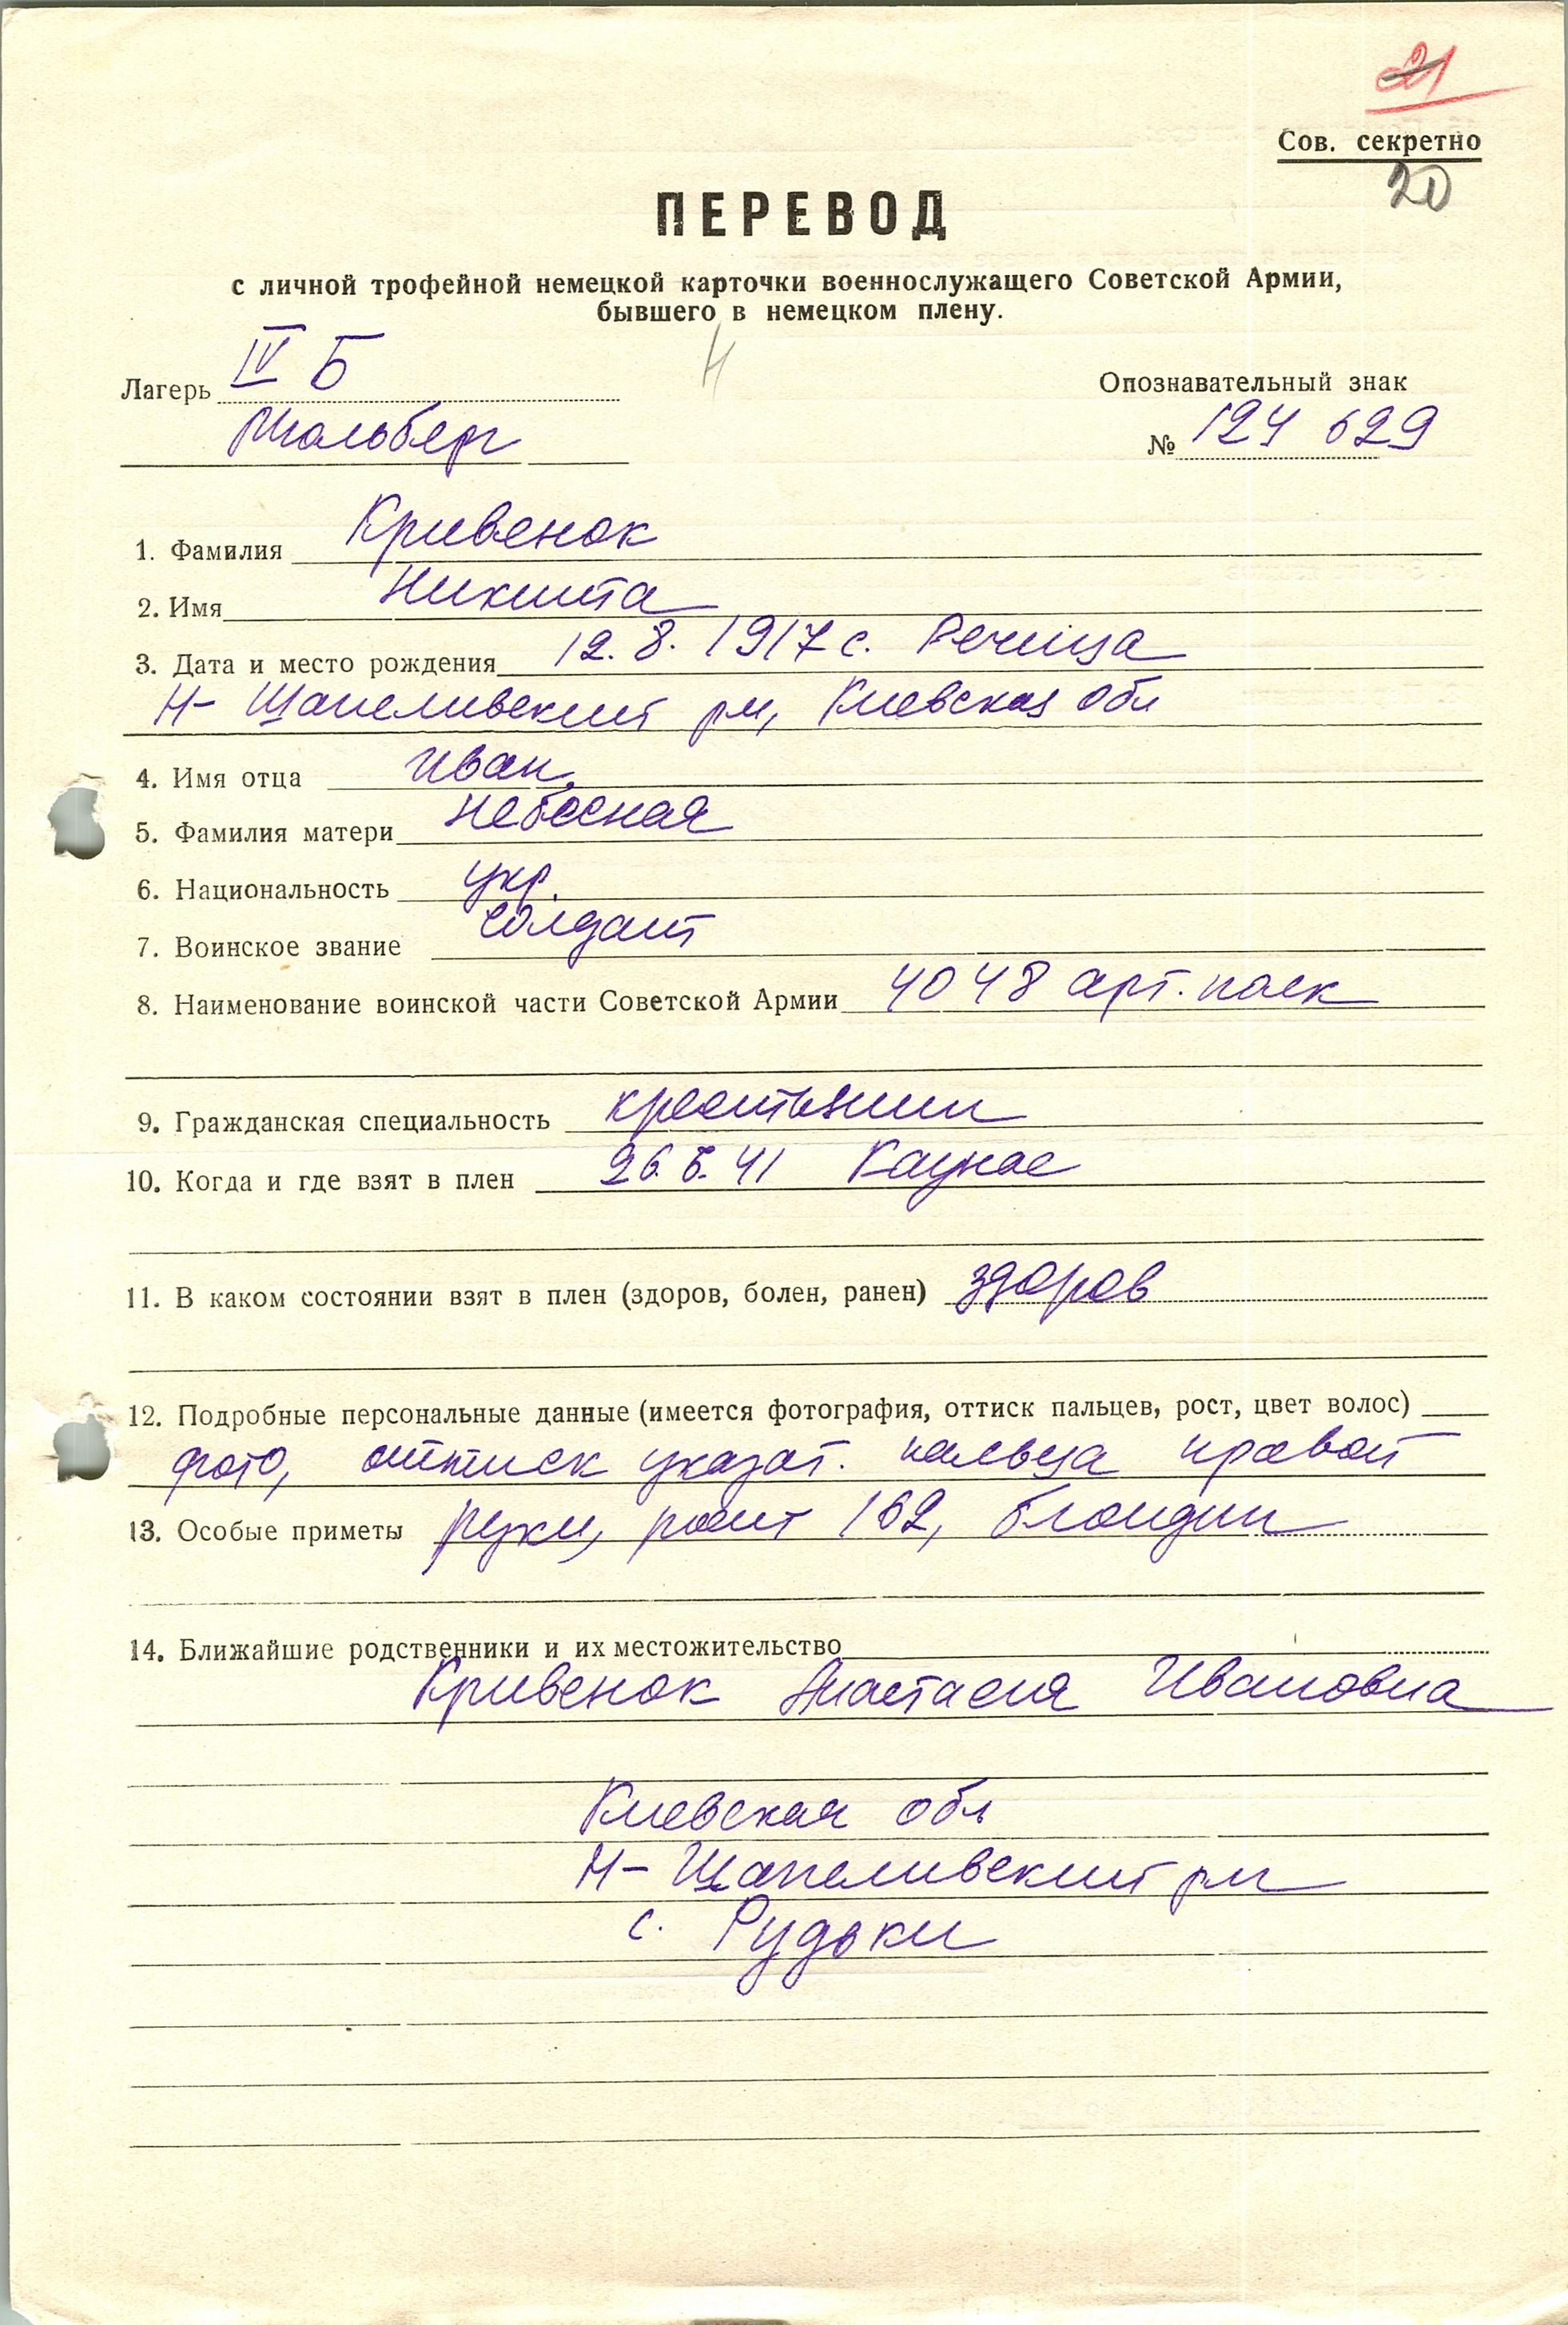 21
Сов. секретно
20
ПЕРЕВОД
с личной трофейной немецкой карточки военнослужащего Советской Армии,
бывшего в немецком плену.
Лагерь IV Б
Опознавательный знак
Мюльберг
№ 124 629
1. Фамилия Кривенок
2. Имя Никита
3. Дата и место рождения 12.8.1917 с. Речица
Н- Щапеливский рн, Киевская обл
4. Имя отца Иван,
5. Фамилия матери Небесная
6. Национальность укр.
7. Воинское звание солдат
8. Наименование воинской части Советской Армии 4048 арт. полк
9. Гражданская специальность крестьянин
10. Когда и где взят в плен 26.6.41 Каунас
11. В каком состоянии взят в плен (здоров, болен, ранен) здоров
12. Подробные персональные данные (имеется фотография, оттиск пальцев, рост, цвет волос)
фото, оттиск указат. пальца правой
13. Особые приметы руки, рост 162, блондин
14. Ближайшие родственники и их местожительство
Кривенок Анастасия Ивановна
Киевская обл
Н- Щапеливский рн
с. Рудьки